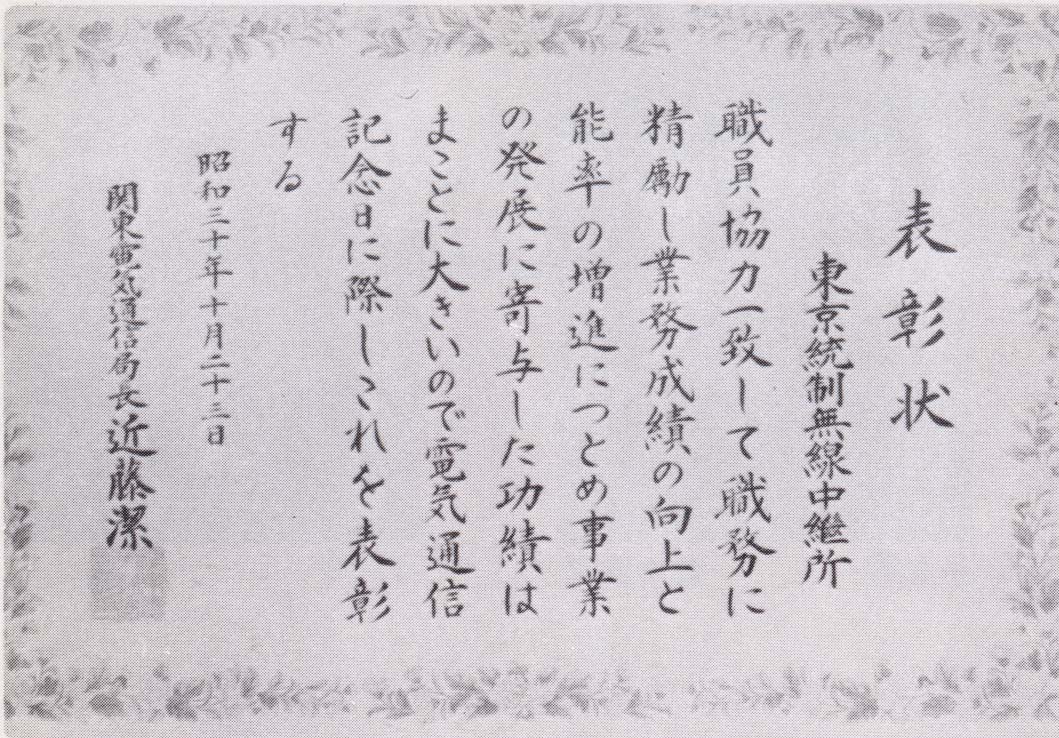 表彰状
東京統制無線中継所
職員協力一致して職務に
精励し業務成績の向上と
能率の増進につとめ事業
の発展に寄与した功績は
まことに大きいので電気通信
記念日に際しこれを表彰
する
昭和三十年十月二十三日
関東電気通信局長近藤潔